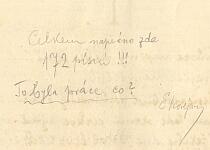 Celkem napečeno zde
172 písní !!!
To byla práce co?